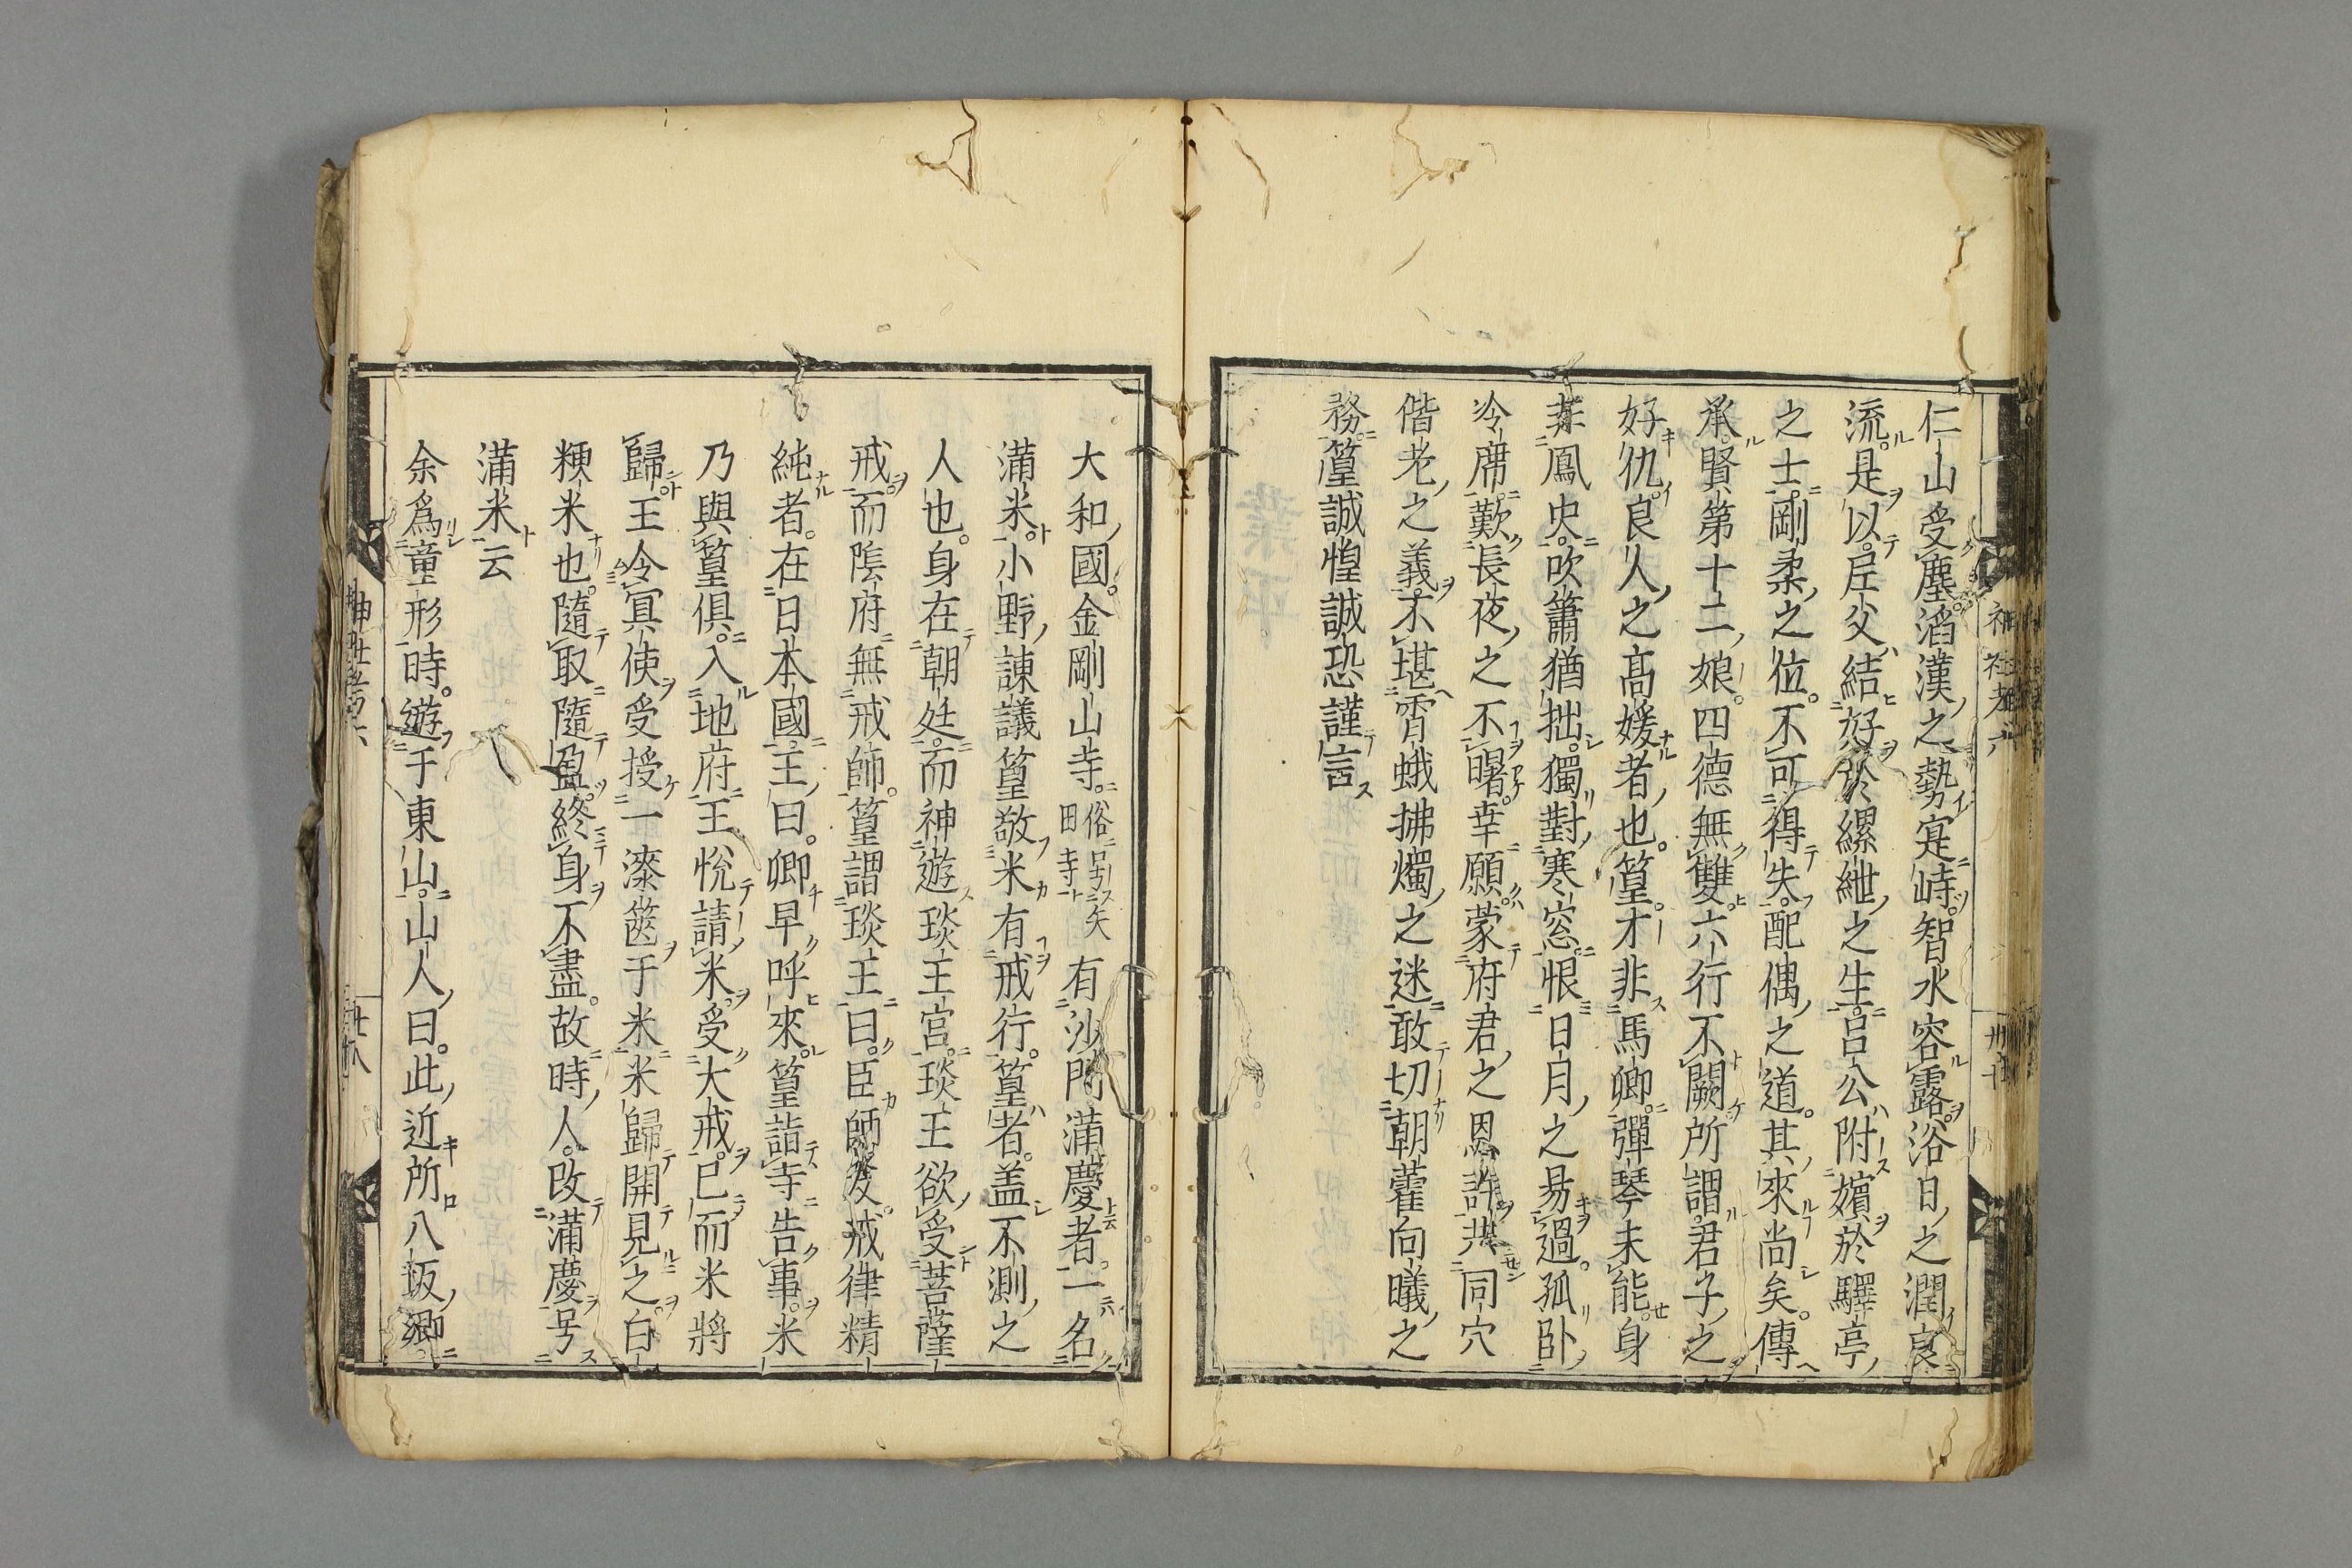 仁山受塵滔漢之勢寔峙智水容露浴日之潤良
流是以垕父結好於縲紲之生呂公附嬪於驛亭
之士剛柔之位不可得失配偶之道其來尚矣傳
承賢第十二娘四德無雙六行不闕所謂君子之
好仇良人之高媛者也篁才非馬卿彈琴未能身
非鳳史吹簫猶拙獨對寒窓恨日月之易過孤卧
冷席歎長夜之不曙幸願蒙府君之恩許共同穴
偕老之義不堪霄蛾拂燭之迷敢切朝藿向曦之
務篁誠惶誠恐謹言
大和國金剛山寺俗号矢田寺有沙門滿慶者一名
滿米小野諫議篁敬米有戒行篁者盖不測之
人也身在朝廷而神遊琰王宮琰王欲受菩薩
戒而陰府無戒師篁謂琰王曰臣師發戒律精
純者在日本國王曰卿早呼來篁詣寺告事米
乃與篁俱入地府王悅請米受大戒已而米將
歸王令冥使受授一漆篋于米米歸開見之白
粳米也隨取隨盈終身不盡故時人改滿慶号
滿米云
余爲童形時遊于東山山人曰此近所八坂鄉
神社考六